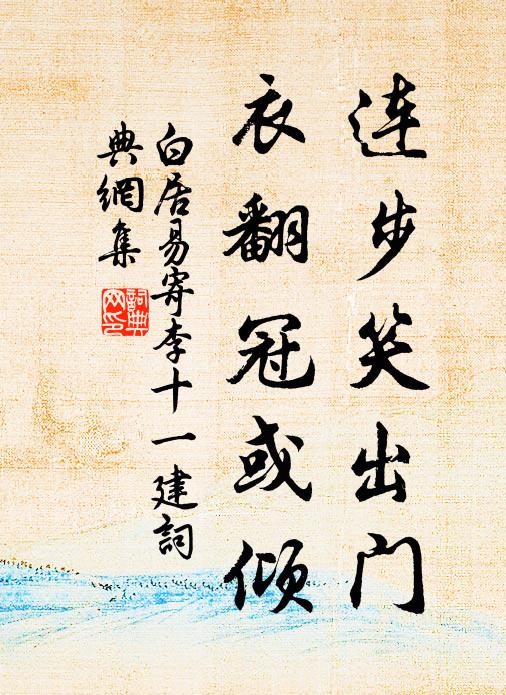 连步笑出门
衣翻冠或倾
白居易寄李十一建词
典网集
词典
网印